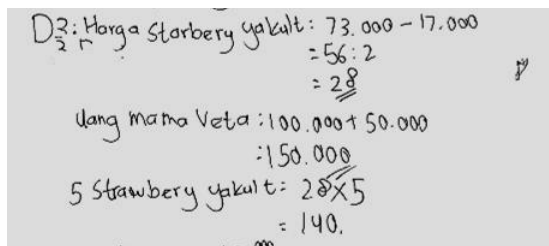 D3: Harga Starbery yakult: 73.000 - 17.000
= 56 : 2
= 28
Uang mama Veta : 100.000 + 50.000
: 150.000
5 Strawbery yakult = 28 x 5
= 140.